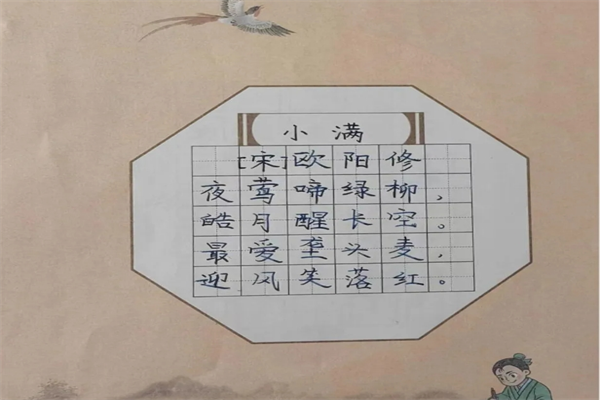 小满
[宋]欧阳修
夜莺啼绿柳，
皓月醒长空。
最爱垄头麦，
迎风笑落红。